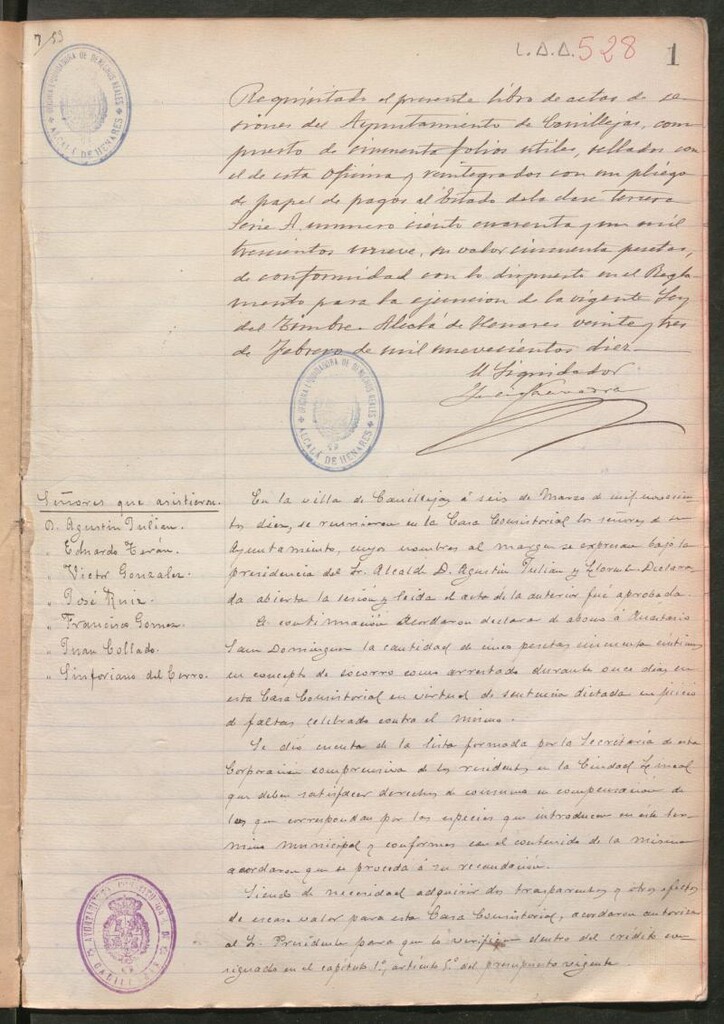 7/53
L.D.D. 528
1
OFICINA LIQUIDADORA DE DERECHOS REALES
ALCALÁ DE HENARES
Requisitado el presente libro de actas de se-
siones del Ayuntamiento de Canillejas, com-
puesto de cincuenta folios utiles, sellados con
el de esta Oficina y reintegrados con un pliego
de papel de pagos al Estado de la clase tercera
Serie A. numero ciento cuarenta y un mil
trescientos nueve, su valor cincuenta pesetas,
de conformidad con lo dispuesto en el Regla-
mento para la ejecucion de la vigente Ley
del Timbre. Alcalá de Henares veinte y tres
de Febrero de mil novecientos diez
El Liquidador
OFICINA LIQUIDADORA DE DERECHOS REALES
ALCALÁ DE HENARES
Señores que asistieron.
D. Agustin Julian.
" Eduardo Terán.
" Victor Gonzalez
" José Ruiz.
" Francisco Gomez
" Juan Collado.
" Sinforiano del Cerro.
En la villa de Canillejas á seis de Marzo de mil novecien-
tos diez, se reunieron en la Casa Consistorial los señores de su
Ayuntamiento, cuyos nombres al margen se expresan bajo la
presidencia del Sr. Alcalde D. Agustin Julian y Llorente. Declara-
da abierta la sesión y leida el acta de la anterior fué aprobada.
A continuación acordaron declarar de abono á
San Dominguez la cantidad de cinco pesetas cincuenta centimos
en concepto de socorro como arrestado durante once dias en
esta Casa Consistorial en virtud de sentencia dictada en juicio
de faltas celebrado contra el mismo.
Se dió cuenta de la lista formada por la Secretaría de esta
Corporación comprensiva de los residentes en la Ciudad Lineal
que deben satisfacer derechos de consumo en compensación de
los que correspondan por las especies que introducen en este ter-
mino municipal y conformes con el contenido de la misma
acordaron que se proceda á su recaudación.
Siendo de necesidad adquirir dos trasparentes y otros efectos
de escaso valor para esta Casa Consistorial, acordaron autorizar
al Sr. Presidente para que lo verifique dentro del crédito con-
signado en el capítulo 1º, artículo 5º del presupuesto vigente.
AYUNTAMIENTO CONSTITUCIONAL DE CANILLEJAS